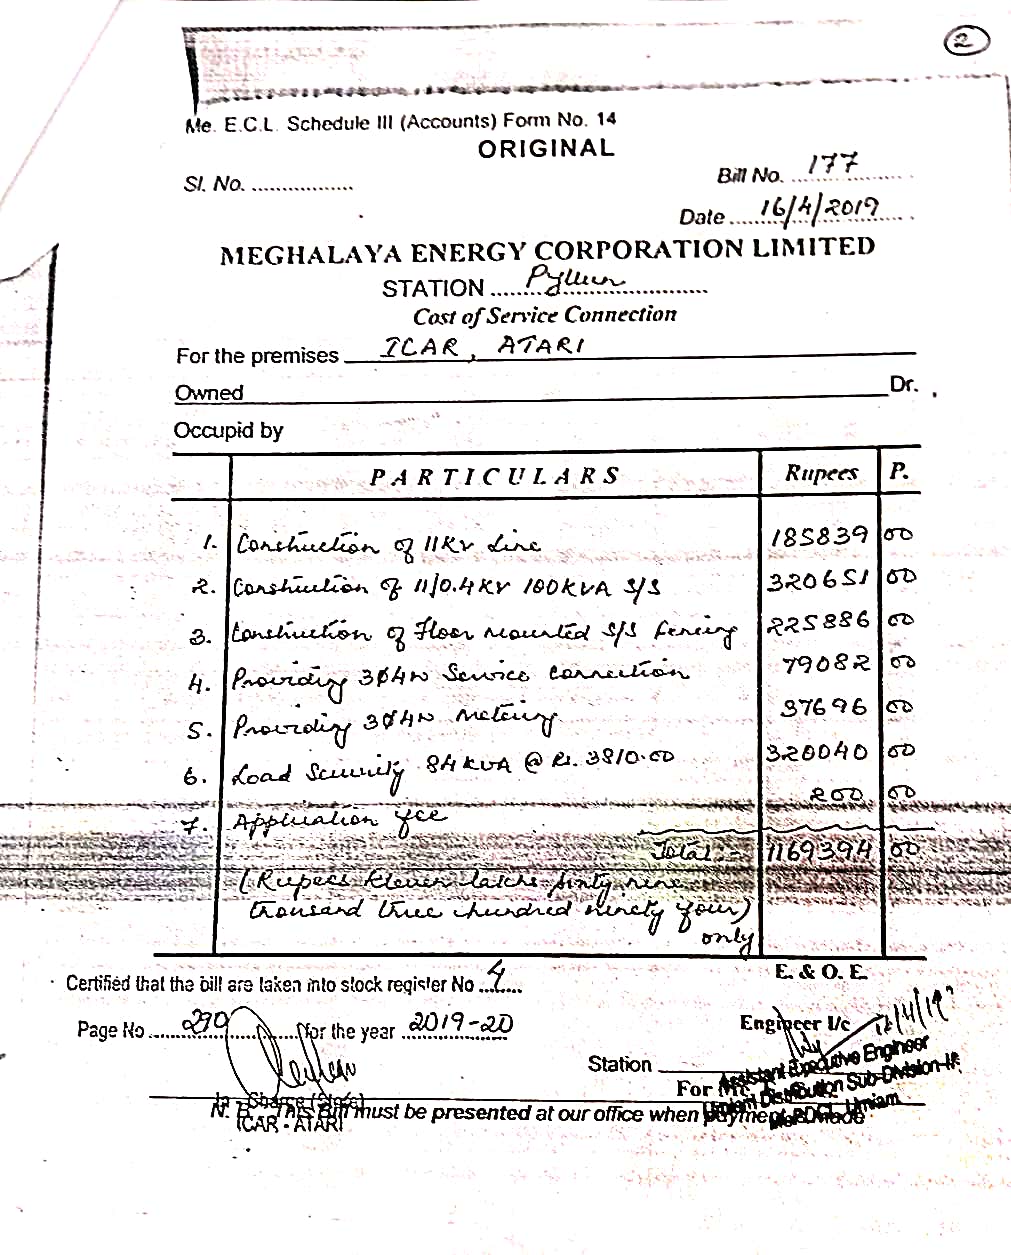 2
Me. E.C.L. Schedule III (Accounts) Form No. 14
ORIGINAL
Sl. No. ..................
Bill No. 177
Date 16/4/2019
MEGHALAYA ENERGY CORPORATION LIMITED
STATION
Cost of Service Connection
For the premises ICAR, ATARI
Owned Dr.
Occupid by
PARTICULARS Rupees P.
1. Construction of 11KV Line 185839 00
2. Construction of 11/0.4KV 100KVA S/S 320651 00
3. Construction of Floor mounted S/S fencing 225886 00
4. Providing 3Ø4W Service connection 79082 00
5. Providing 3Ø4W Metering 37696 00
6. Load Security 84KVA @ Rs. 3810.00 320040 00
7. Application fee 200 00
Total:- 1169394 00
(Rupees Eleven lakhs sixty nine
thousand three hundred ninety four)
only
E. & O. E.
Certified that the bill are taken into stock register No. 4
Page No 290 for the year 2019-20
Engineer I/c
Station
Assistant Executive Engineer
For
Umiam Distribution Sub-Division-II
MePDCL, Umiam
In Charge (Store)
ICAR - ATARI
N. B. - This Bill must be presented at our office when payment is made